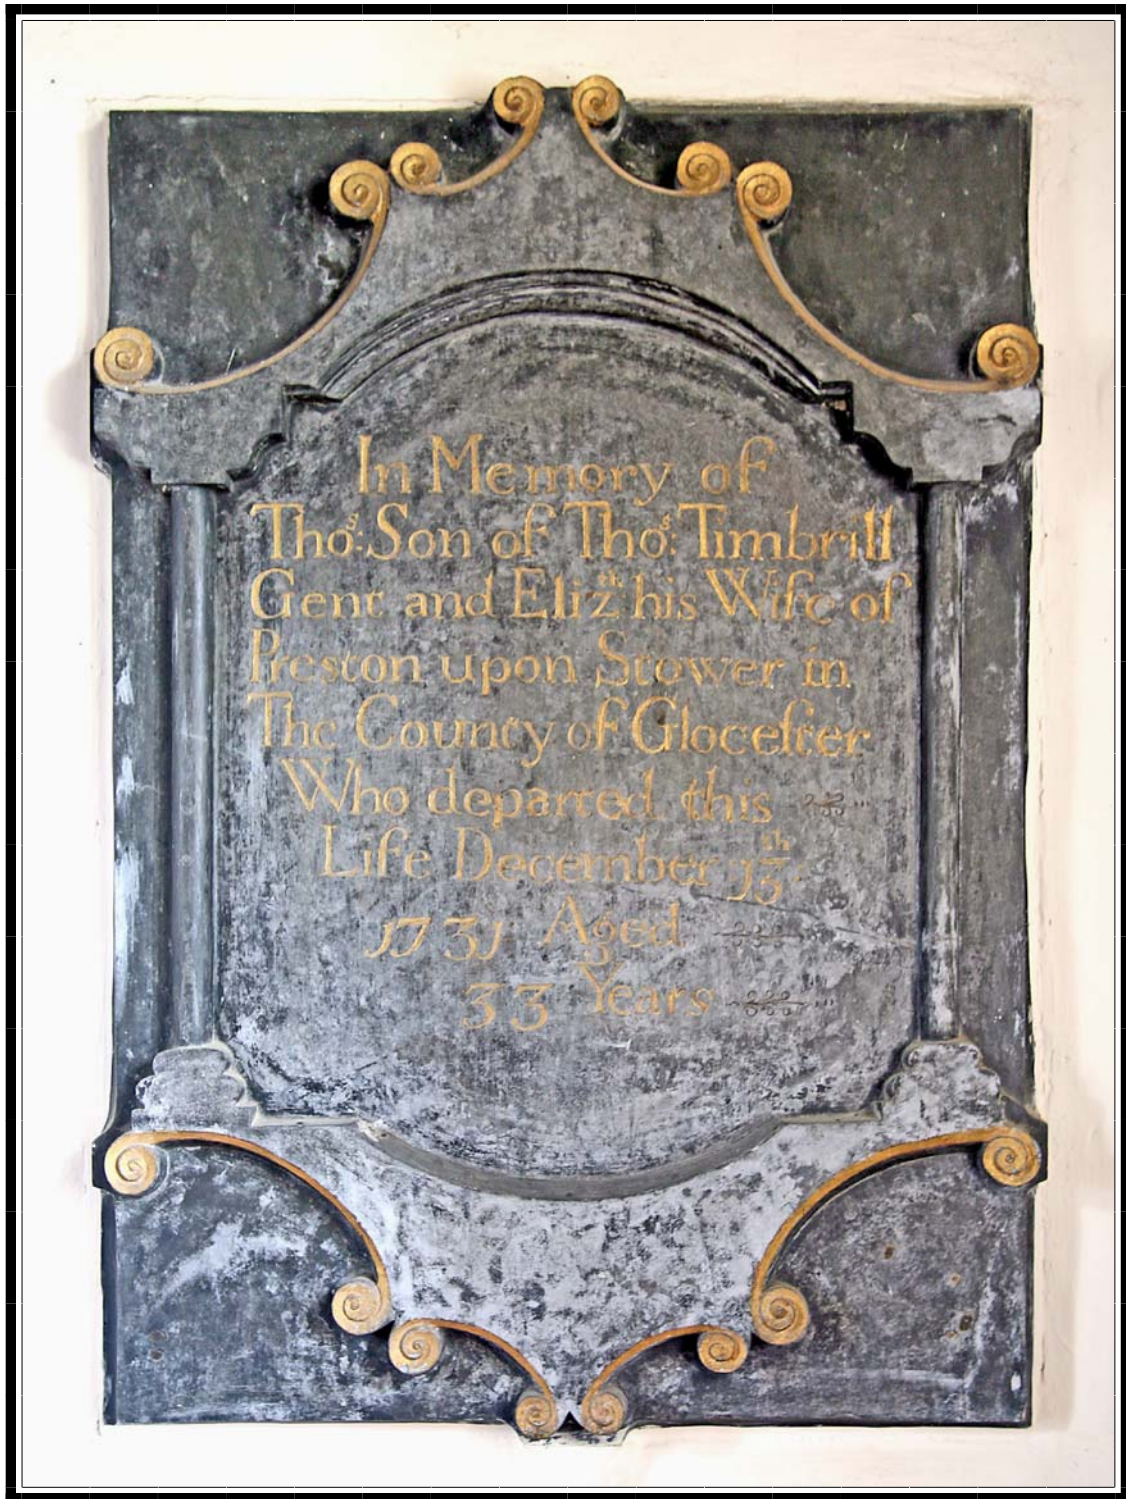 In Memory of
Tho.ˢ: Son of Tho.ˢ: Timbrill
Gent and Eliz.ᵗʰ his Wife of
Preston upon Stower in
The County of Gloceſter
Who departed this
Life December 13ᵗʰ
1731 Aged
33 Years